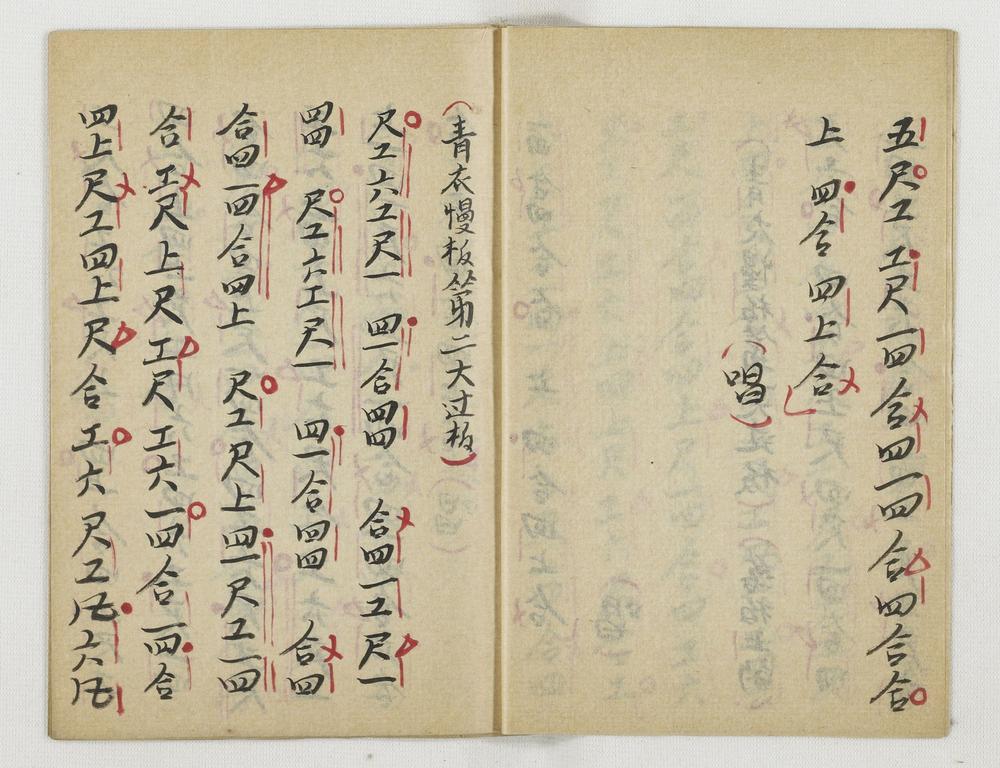 五尺工工尺一四合四一四合四合合
上四合四上合
（唱）
（青衣慢板第二大过板）
尺工六工尺一四一合四四合四一工尺一
四四尺工六工尺一四一合四四合四
合四一四合四上尺工尺上四一尺工一四
合工尺上尺工尺工六一四合一四合
四上尺工四上尺合工六尺工凡六凡